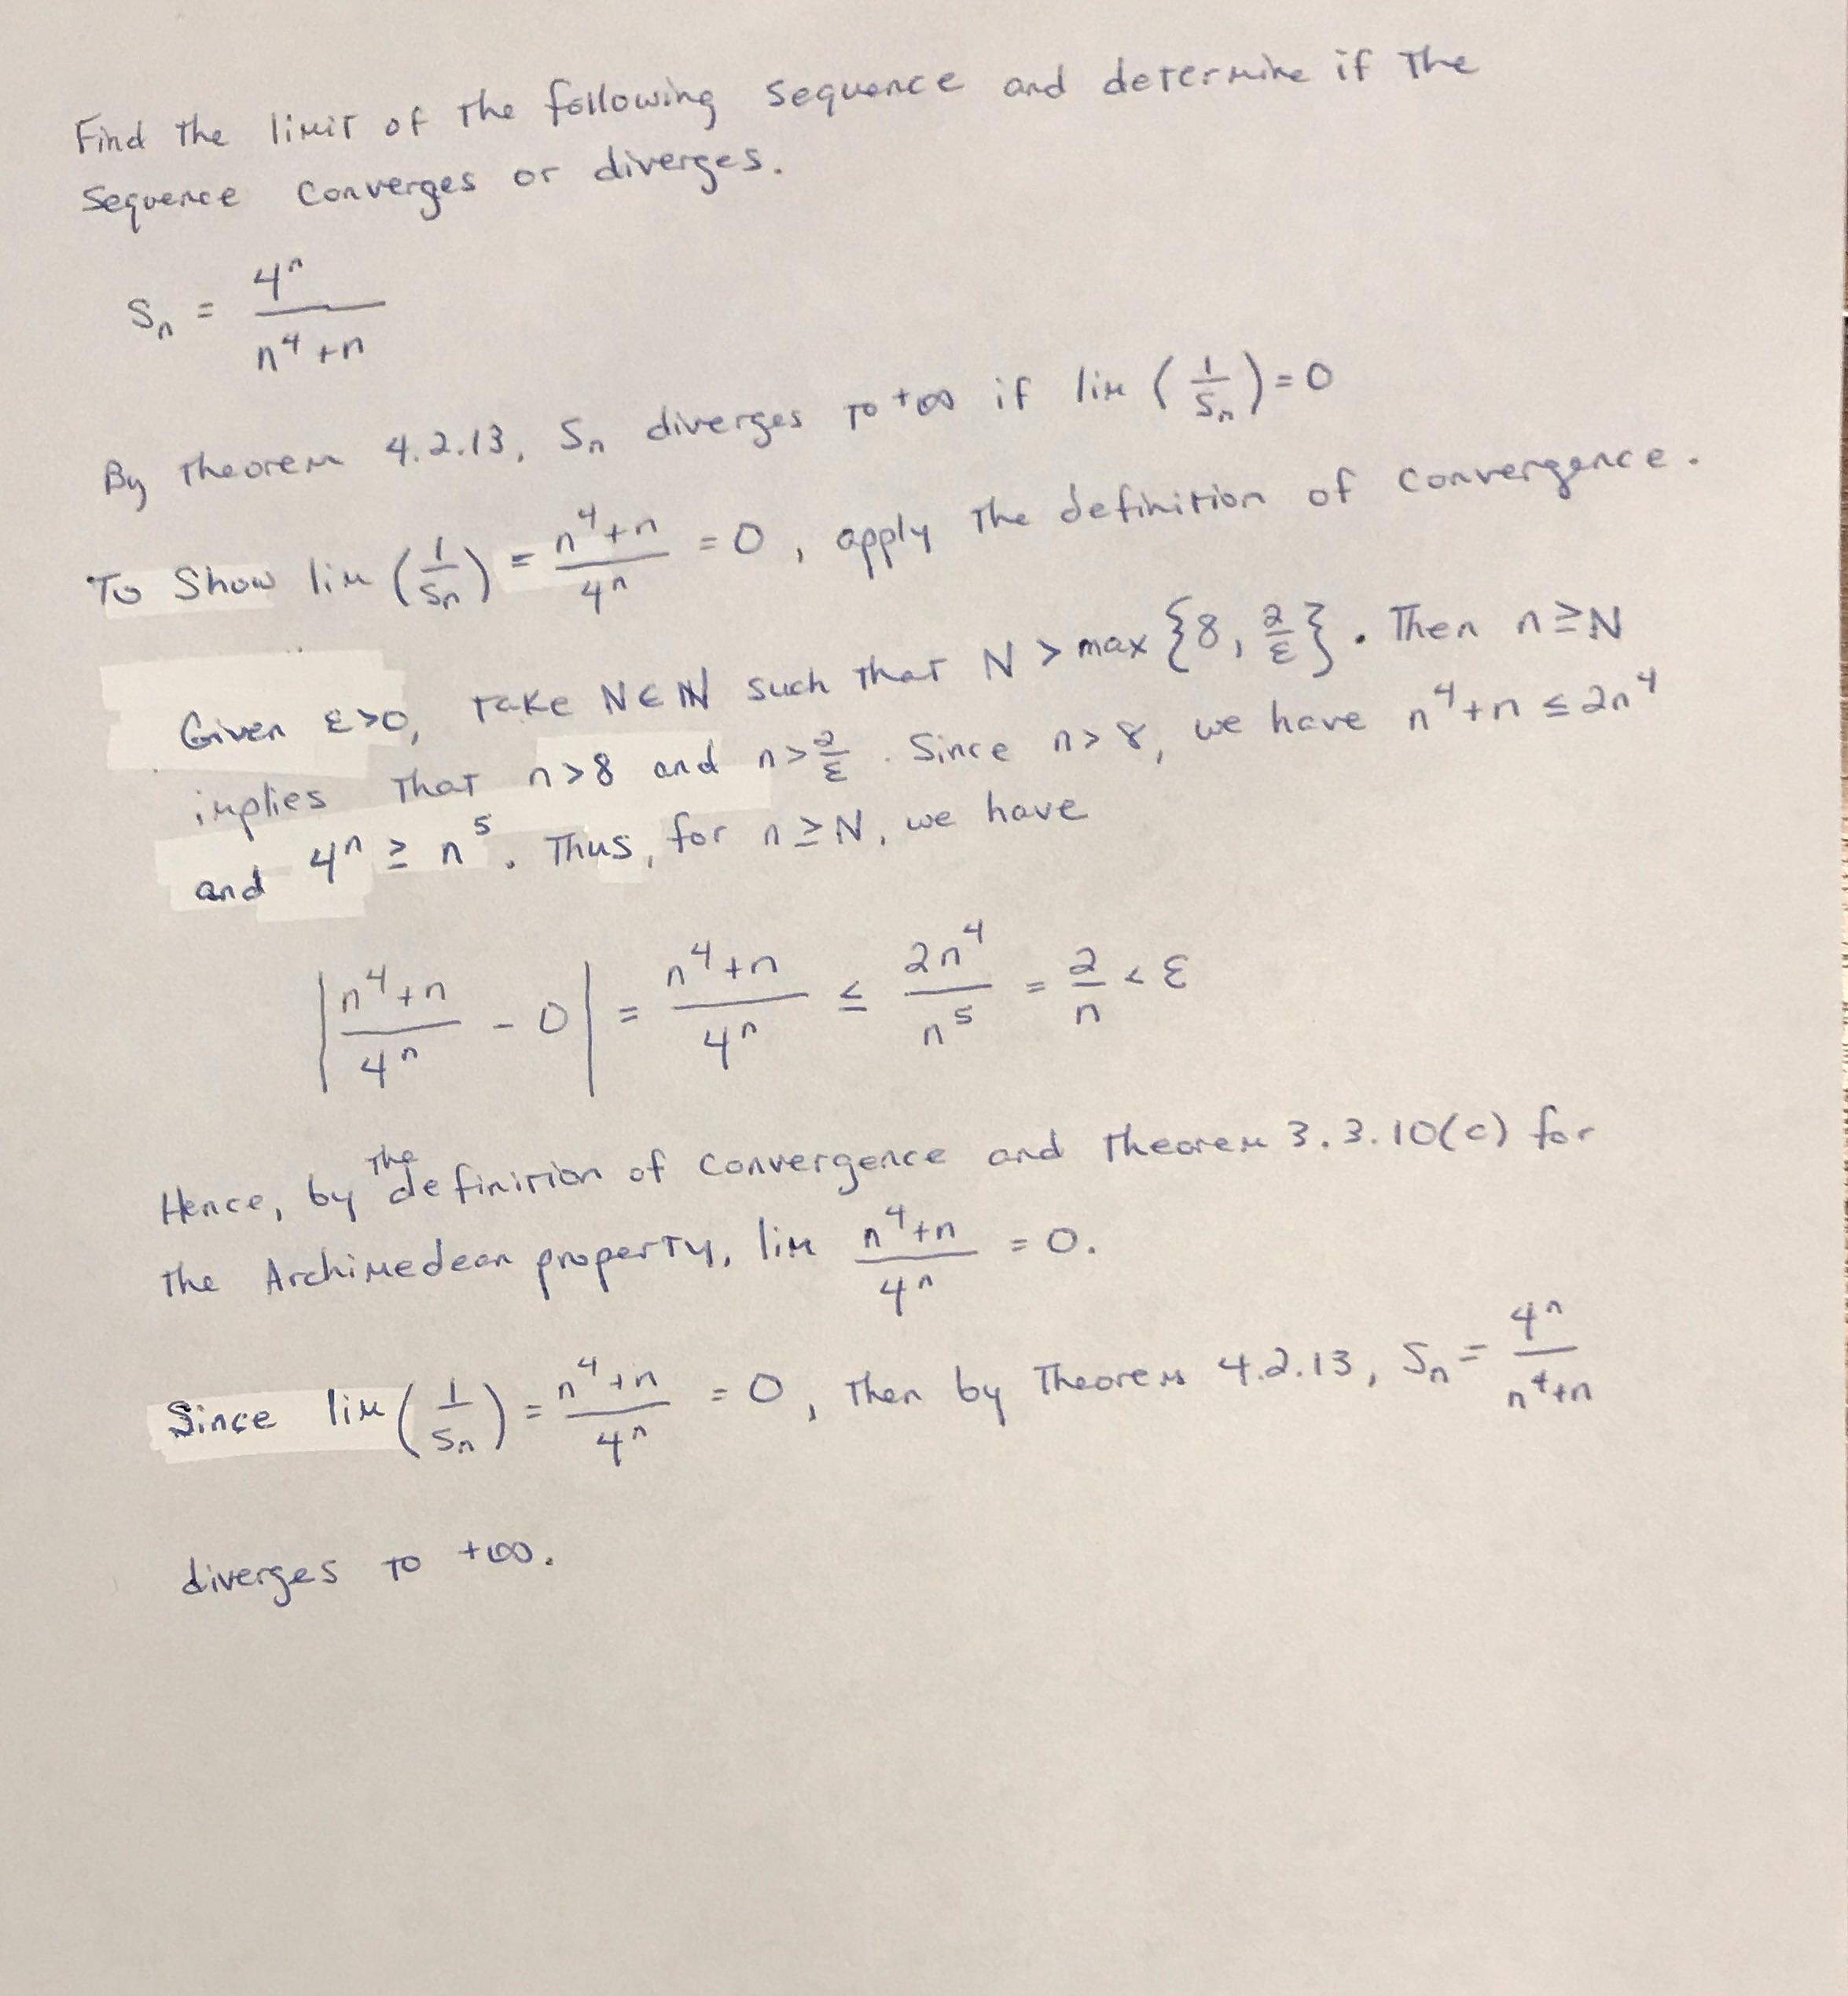 Find the limit of the following sequence and determine if the
sequence converges or diverges.
Sₙ = 4ⁿ / (n⁴+n)
By Theorem 4.2.13, Sₙ diverges to +∞ if lim (1/Sₙ) = 0
To Show lim (1/Sₙ) = (n⁴+n)/4ⁿ = 0, apply the definition of convergence.
Given ε>0, take N∈ℕ such that N > max {8, 2/ε}. Then n≥N
implies that n>8 and n>2/ε. Since n>8, we have n⁴+n ≤ 2n⁴
and 4ⁿ ≥ n⁵. Thus, for n≥N, we have
|(n⁴+n)/4ⁿ - 0| = (n⁴+n)/4ⁿ ≤ 2n⁴/n⁵ = 2/n < ε
Hence, by the definition of convergence and Theorem 3.3.10(c) for
the Archimedean property, lim (n⁴+n)/4ⁿ = 0.
Since lim (1/Sₙ) = (n⁴+n)/4ⁿ = 0, then by Theorem 4.2.13, Sₙ = 4ⁿ/(n⁴+n)
diverges to +∞.